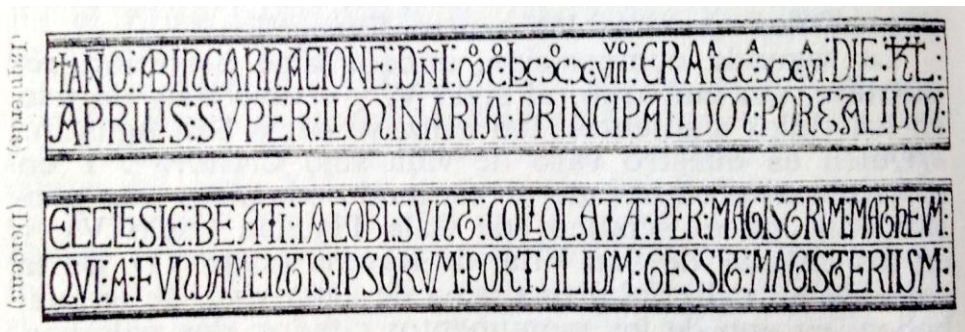 (Izquierda).
†AÑO:AB INCARNACIONE:DÑI:Mº Cº LXXXVIIIVº:ERA Iª CCª XXVIª:DIE:KL:
APRILIS:SVPER:LIMINARIA:PRINCIPALIVM:PORTALIVM:
(Derecha)
ECCLESIE:BEATI:IACOBI:SVNT:COLLOCATA:PER:MAGISTRVM:MATHEVM:
QVI:A:FVNDAMENTIS:IPSORVM:PORTALIVM:GESSIT:MAGISTERIVM: